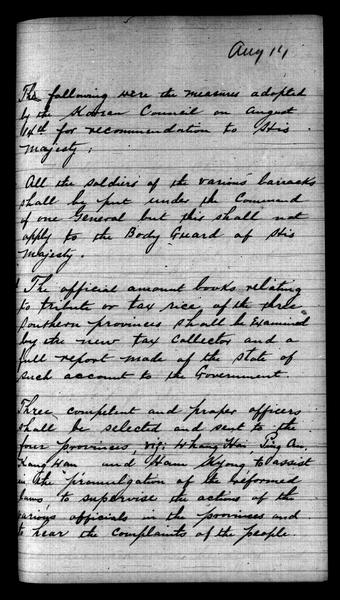 Aug 14
The following were the measures adopted
by the Korean Council on August
14th for recommendation to His
Majesty;
All the soldiers of the various barracks
shall by put under the Command
of one General but this shall not
apply to the Body Guard of His
Majesty.
The official amount books relating
to tribute or tax rice of the three
southern provinces shall be examined
by the new tax collector and a
full report made of the state of
such account to the Government.
Three competent and proper officers
shall be selected and sent to the
four provinces, viz; Whang Hai, Ping An,
Kang Wan and Ham Kyong, to assist
in the promulgation of the reformed
laws to supervise the actions of the
various officials in the provinces and
to hear the complaints of the people.